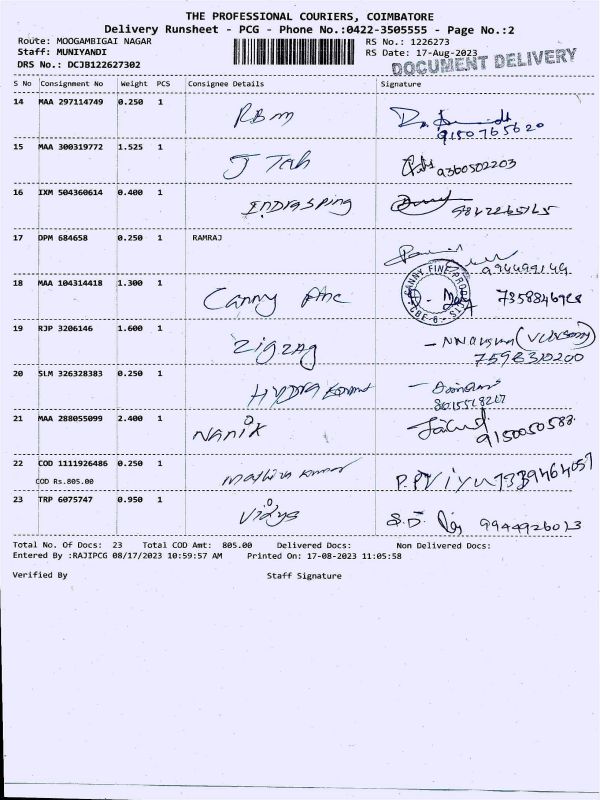 THE PROFESSIONAL COURIERS, COIMBATORE
Delivery Runsheet - PCG - Phone No.:0422-3505555 - Page No.:2
Route: MOOGAMBIGAI NAGAR RS No.: 1226273
Staff: MUNIYANDI RS Date: 17-Aug-2023
DRS No.: DCJB122627302 DOCUMENT DELIVERY
S No Consignment No Weight PCS Consignee Details Signature
14 MAA 297114749 0.250 1 RBM
9150765620
15 MAA 300319772 1.525 1 J Tah 9360502203
16 IXM 504360614 0.400 1
17 DPM 684658 0.250 1 RAMRAJ
18 MAA 104314418 1.300 1 Canny
19 RJP 3206146 1.600 1 zigzag
7598310200
20 SLM 326328383 0.250 1 HYDRA
21 MAA 288055099 2.400 1 Nanik
9150050588
22 COD 1111926486 0.250 1 Kumar 7339464057
COD Rs.805.00
23 TRP 6075747 0.950 1 Vidya S.D.
Total No. Of Docs: 23 Total COD Amt: 805.00 Delivered Docs: Non Delivered Docs:
Entered By :RAJIPCG 08/17/2023 10:59:57 AM Printed On: 17-08-2023 11:05:58
Verified By Staff Signature